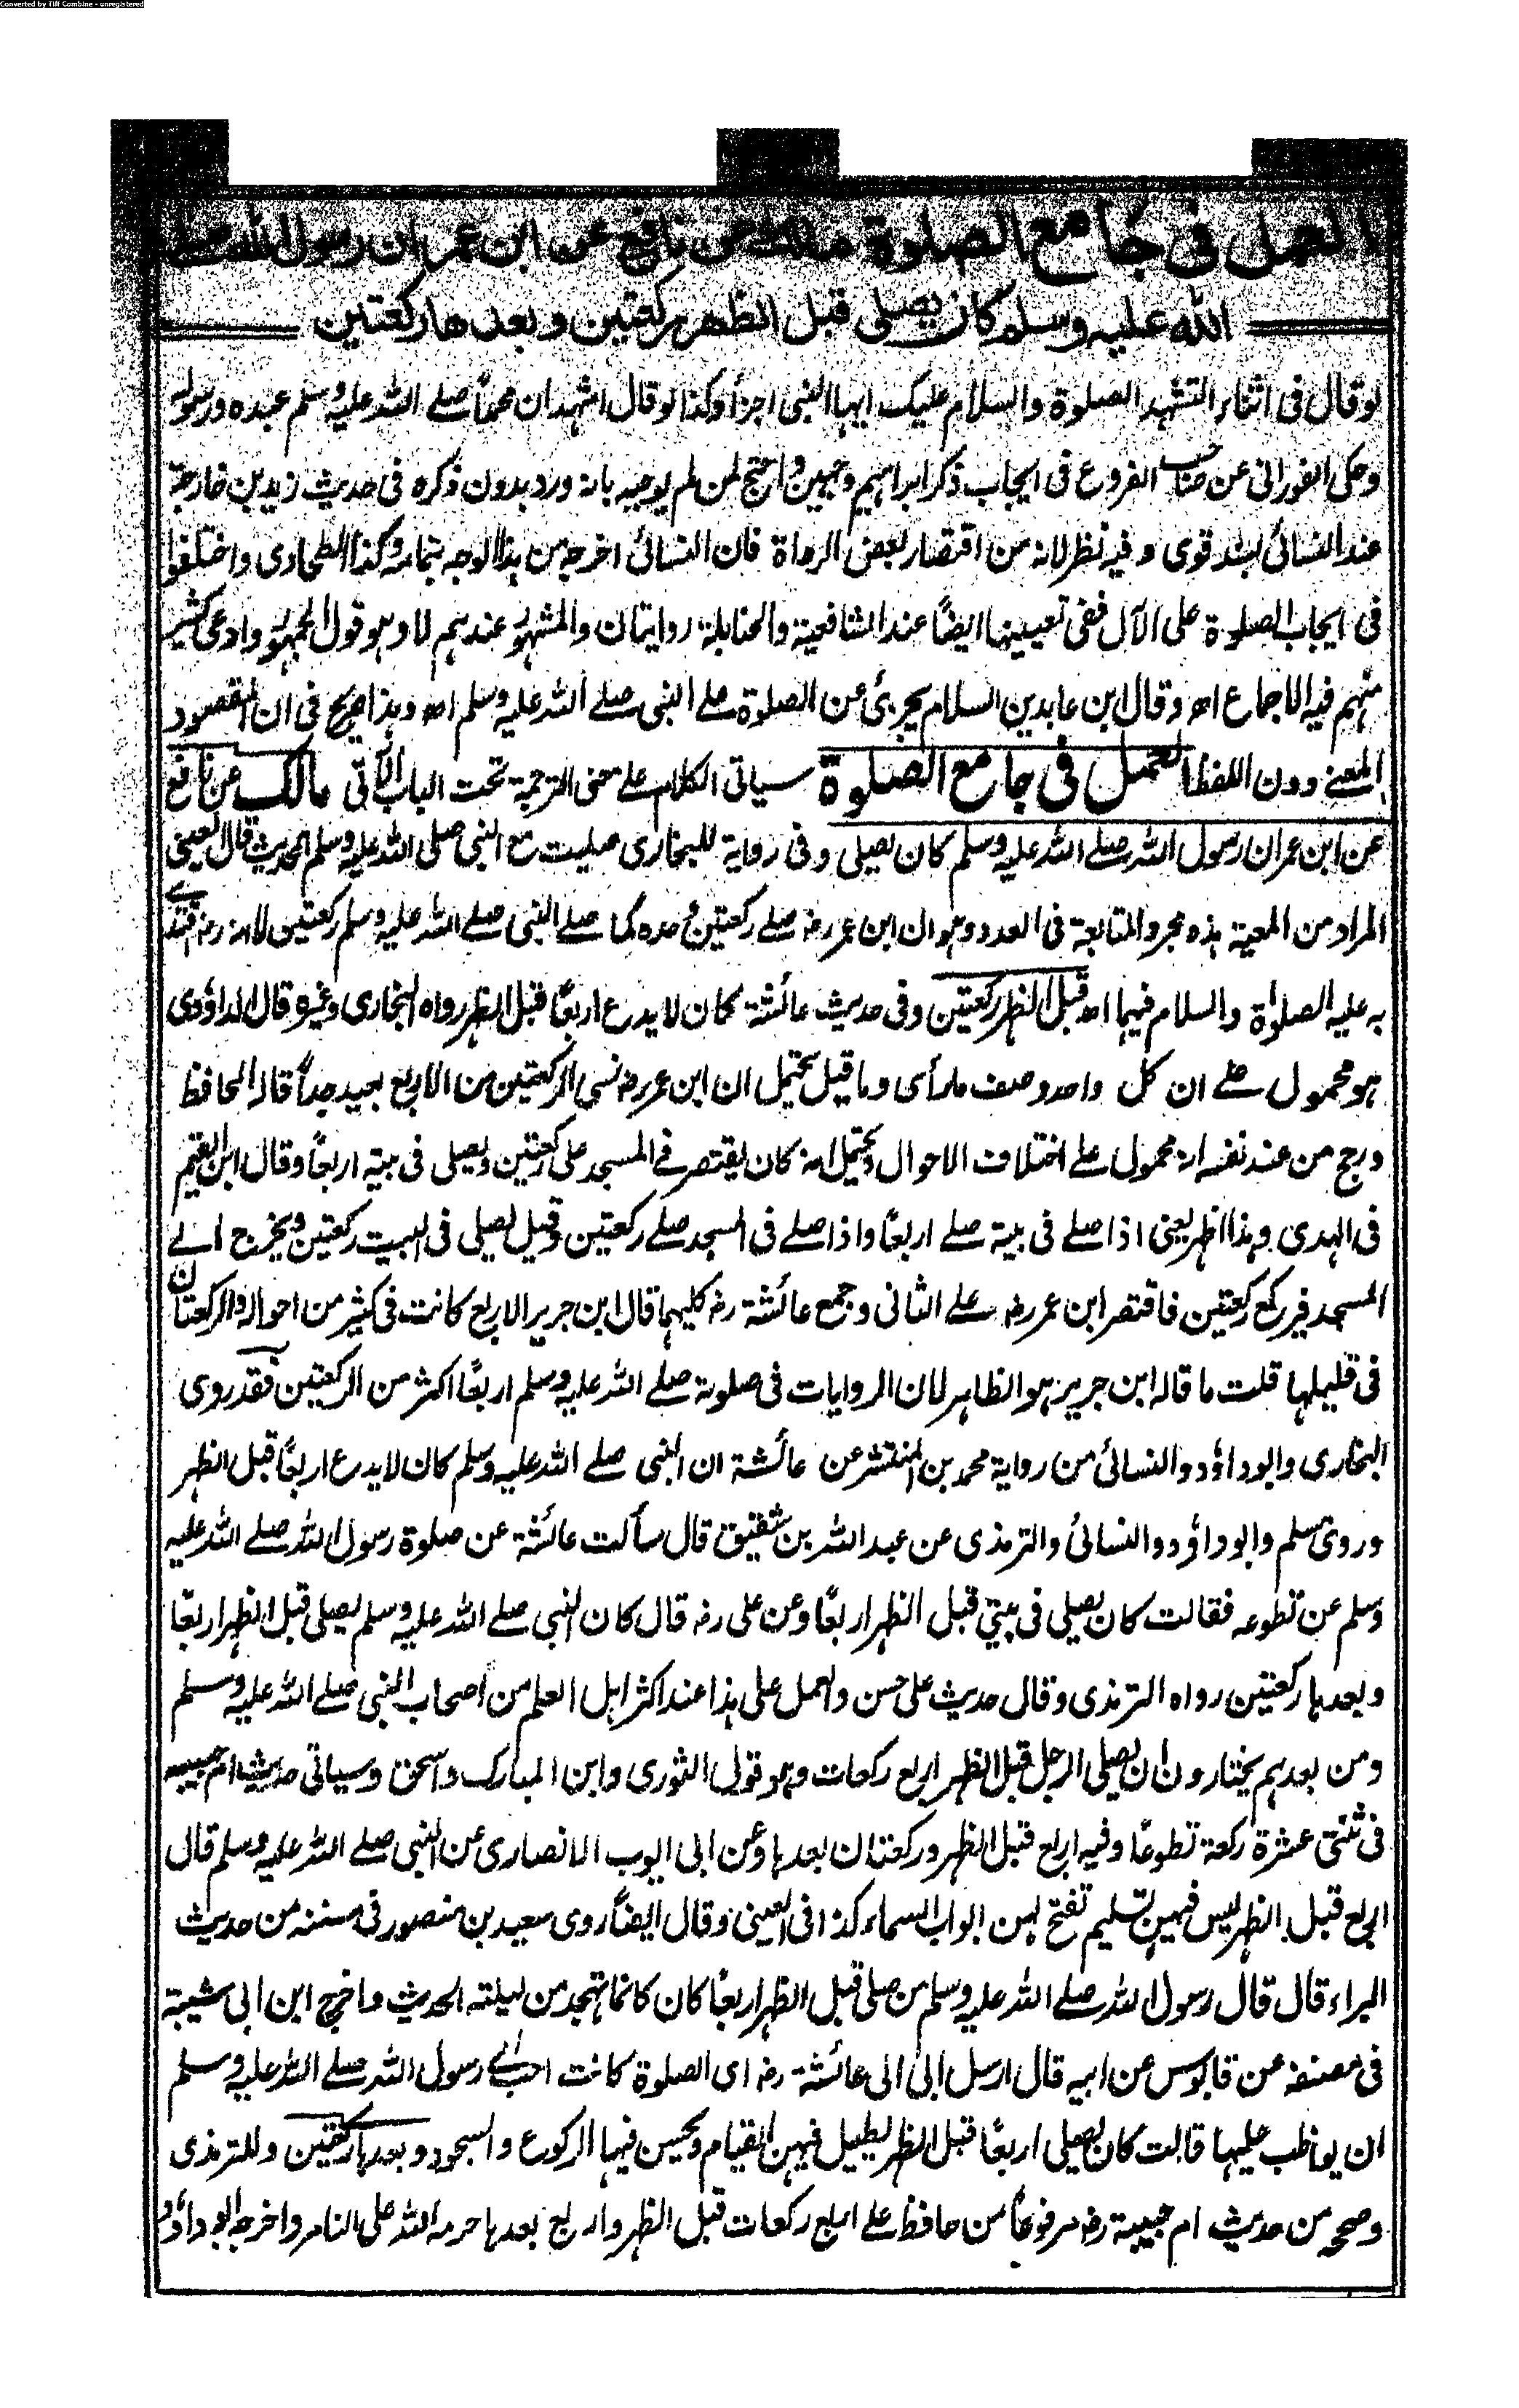 Converted by Tiff Combine - unregistered
العمل فی جامع الصلوة مالك عن نافع عن ابن عمر ان رسول الله صلے
الله علیه وسلم کان یصلی قبل الظهر رکعتین و بعدها رکعتین
لو قال فی اثناء التشهد الصلوة والسلام علیک ایها النبی اجزأ وکذا لو قال اشهد ان محمداً صلے الله علیه وسلم عبده ورسوله
وحکی الفورانی عن صاحب الفروع فی ایجاب ذکر ابراهیم وجهین واحتج لمن لم یوجبه بانه ورد بدون ذکره فی حدیث زید بن خارجة
عند النسائی بسند قوی وفیه نظر لانه من اقتصار بعض الرواة فان النسائی اخرجه من هذا الوجه بتمامه وکذا الطحاوی واختلفوا
فی ایجاب الصلوة علی الآل ففی تعیینها ایضاً عند الشافعیة والحنابلة روایتان والمشهور عندهم لا وهو قول الجمهور وادعی کثیر
منهم فیه الاجماع اھ وقال ابن عابدین السلام یجزئ عن الصلوة علے النبی صلے الله علیه وسلم اھ وهذا صریح فی ان المقصود
المعنے دون اللفظ العمل فی جامع الصلوة سیاتی الکلام علے معنی الترجمة تحت الباب الآتی مالک عن نافع
عن ابن عمر ان رسول الله صلے الله علیه وسلم کان یصلی وفی روایة للبخاری صلیت مع النبی صلی الله علیه وسلم الحدیث قال العینی
المراد من المعیة هذه مجرد المتابعة فی العدد وهو ان ابن عمر رضہ صلے رکعتین وحده کما صلے النبی صلے الله علیه وسلم رکعتین لا انه رضہ اقتدے
به علیه الصلوة والسلام فیهما اھ قبل الظهر رکعتین وفی حدیث عائشة کان لا یدع اربعاً قبل الظهر رواه البخاری وغیره قال الداؤدی
هو محمول علے ان کل واحد وصف ما رأی وما قیل یحتمل ان ابن عمر رضہ نسی الرکعتین من الاربع بعید جداً قاله الحافظ
ورجح من عند نفسه انه محمول علے اختلاف الاحوال ویحتمل انه کان یقتصر فے المسجد علی رکعتین ویصلی فی بیته اربعاً وقال ابن القیم
فی الهدی وهذا اظهر یعنی اذا صلے فی بیته صلے اربعاً واذا صلے فی المسجد صلے رکعتین وقیل یصلی فی البیت رکعتین ویخرج الے
المسجد فیرکع رکعتین فاقتصر ابن عمر رضہ علے الثانی وجمع عائشة رضہ کلیهما قال ابن جریر الاربع کانت فی کثیر من احواله والرکعتان
فی قلیلها قلت ما قاله ابن جریر هو الظاهر لان الروایات فی صلوته صلے الله علیه وسلم اربعاً اکثر من الرکعتین فقد روی
البخاری وابوداؤد والنسائی من روایة محمد بن المنتشر عن عائشة ان النبی صلے الله علیه وسلم کان لا یدع اربعاً قبل الظهر
وروی مسلم وابوداؤد والنسائی والترمذی عن عبد الله بن شقیق قال سألت عائشة عن صلوة رسول الله صلے الله علیه
وسلم عن تطوعه فقالت کان یصلی فی بیتی قبل الظهر اربعاً وعن علی رضہ قال کان النبی صلے الله علیه وسلم یصلی قبل الظهر اربعاً
وبعدها رکعتین رواه الترمذی وقال حدیث علی حسن والعمل علی هذا عند اکثر اهل العلم من اصحاب النبی صلے الله علیه وسلم
ومن بعدهم یختارون ان یصلی الرجل قبل الظهر اربع رکعات وهو قول الثوری وابن المبارک واسحق وسیاتی حدیث ام حبیبه
فی ثنتی عشرة رکعة تطوعاً وفیه اربع قبل الظهر ورکعتان بعدها وعن ابی ایوب الانصاری عن النبی صلے الله علیه وسلم قال
اربع قبل الظهر لیس فیهن تسلیم تفتح لهن ابواب السماء کذا فی العینی وقال ایضاً روی سعید بن منصور فی سننه من حدیث
البراء قال قال رسول الله صلے الله علیه وسلم من صلی قبل الظهر اربعاً کان کانما تهجد من لیلته الحدیث واخرج ابن ابی شیبة
فی مصنفه عن قابوس عن ابیه قال ارسل ابی الی عائشة رضہ ای الصلوة کانت احب الے رسول الله صلے الله علیه وسلم
ان یواظب علیها قالت کان یصلی اربعاً قبل الظهر یطیل فیهن القیام ویحسن فیها الرکوع والسجود وبعدها رکعتین وللترمذی
وصححه من حدیث ام حبیبة رضہ مرفوعاً من حافظ علے اربع رکعات قبل الظهر واربع بعدها حرمه الله علی النار واخرجه ابوداؤد